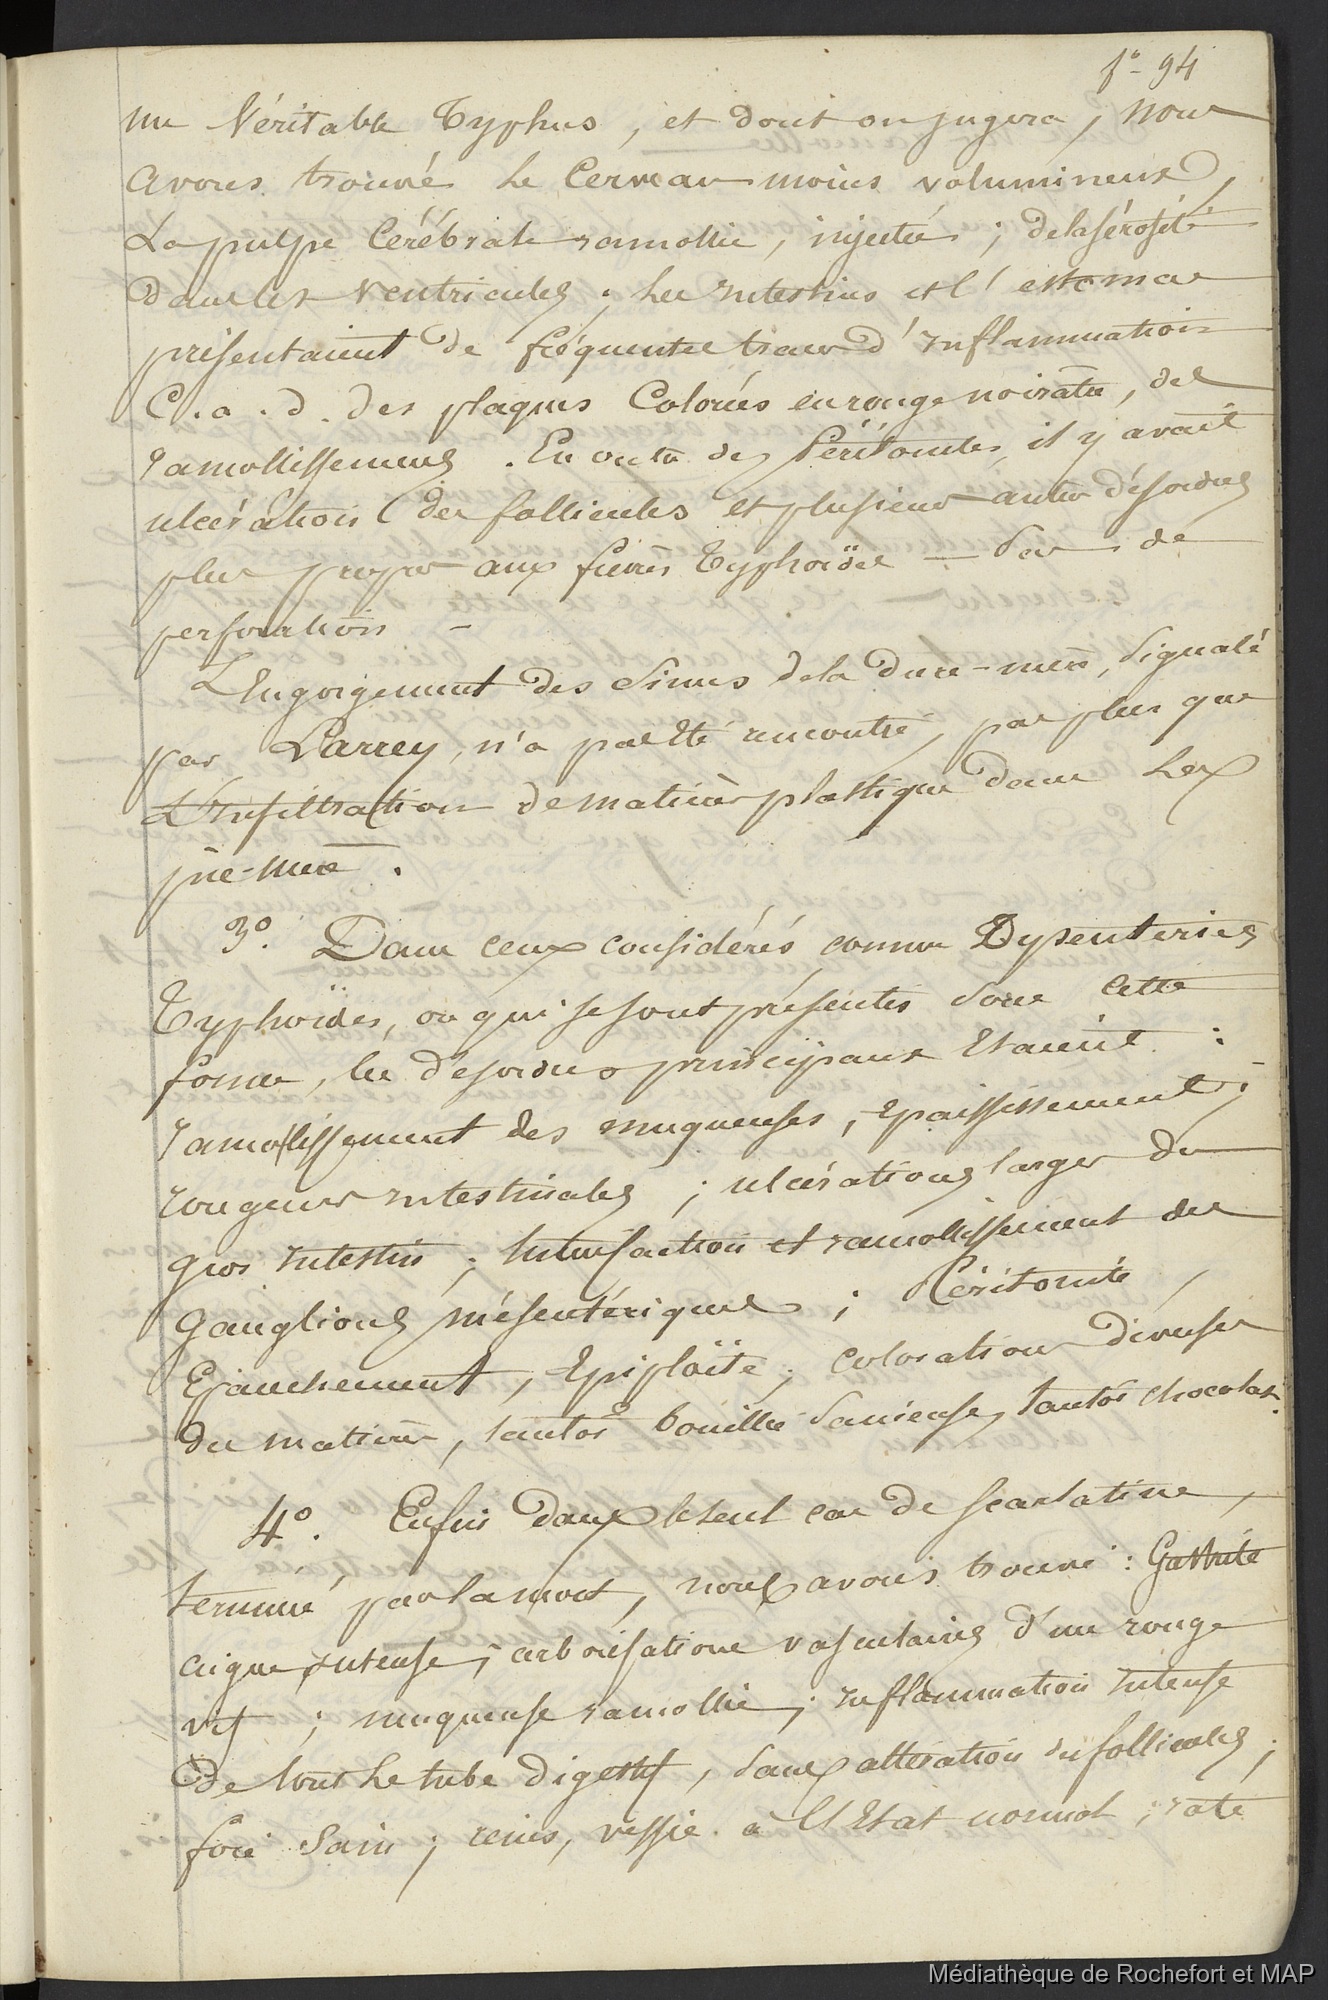 f° - 94
un Véritable Typhus, et dont on jugera, nous
avons trouvé le Cerveau moins volumineux,
La pulpe Cérébrale ramollie, injectée ; de la sérosité
dans les Ventricules ; les Intestins et l'estomac
présentaient de fréquentes traces d'Inflammation
C. a. d. des plaques Colorées en rouge noirâtre, des
ramollissements. En outre des Péritonites, il y avait
ulcération des follicules et plusieurs autres désordres
plus propres aux fièvres Typhoïdes — Pas de
perforation —
L'Engorgement des Sinus de la Dure-mère, Signalé
par Larrey, n'a pas Eté rencontré, pas plus que
L'Infiltration de matière plastique dans les
pie-mère.
3°. Dans ceux considérés comme Dysenteries
Typhoïdes, ou qui se sont présentés sous cette
forme, les désordres principaux Etaient :
ramollissement des muqueuses, Epaississement ;
rougeurs Intestinales ; ulcérations larges du
gros Intestin ; tuméfaction et ramollissement des
Ganglions mésentériques ; Péritonite,
Epanchement, Epiploïte ; coloration diverses
des matières, tantôt bouillie Sanieuse, tantôt chocolat.
4°. Enfin dans le seul cas de scarlatine,
terminé par la mort, nous avons trouvé : Gastrite
aigue, Intense ; arborisations vasculaires d'un rouge
vif ; muqueuse ramollie ; Inflammation Intense
De tout le tube digestif, sans altération des follicules ;
foie Sain ; reins, vessie à l'Etat normal ; rate
Médiathèque de Rochefort et MAP